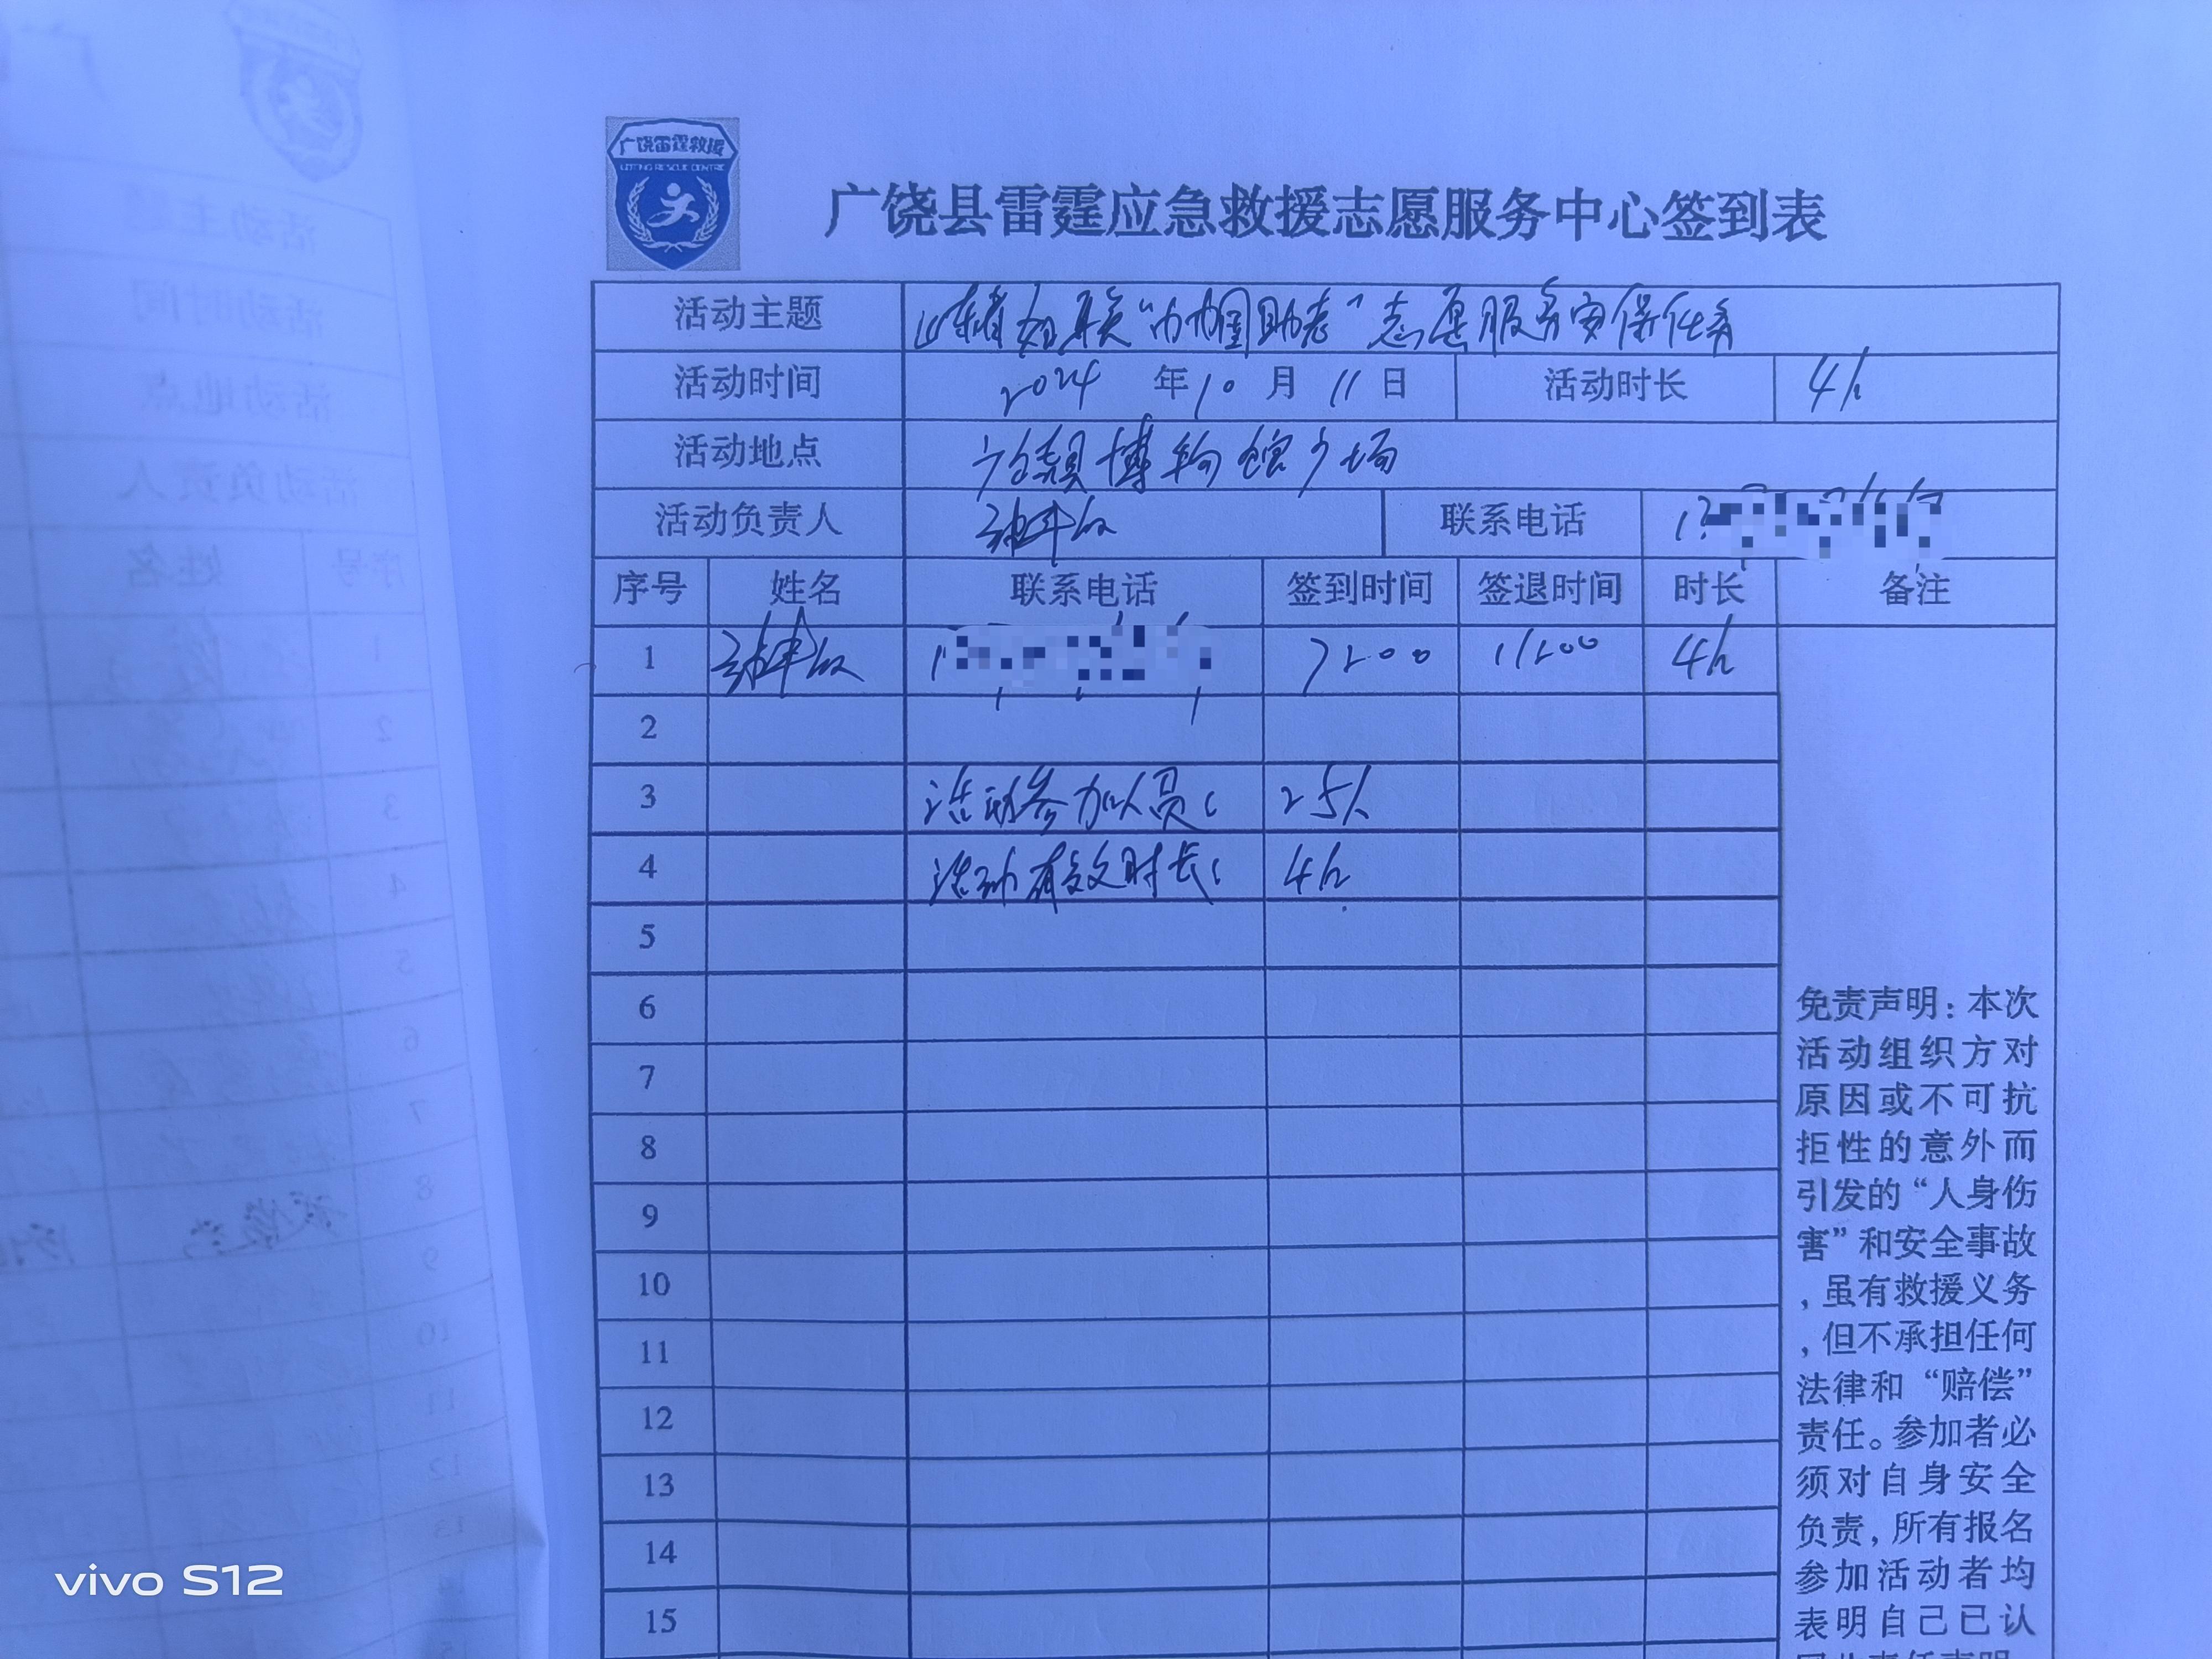 广饶雷霆救援
广饶县雷霆应急救援志愿服务中心签到表
活动主题 山东省妇联“巾帼助老”志愿服务安保任务
活动时间 2024 年 10 月 11 日 活动时长 4h
活动地点 博物馆广场
活动负责人 联系电话
序号 姓名 联系电话 签到时间 签退时间 时长 备注
1 7:00 11:00 4h
2
3 活动参加人员: 25人
4 活动有效时长: 4h
5
6
7
8
9
10
11
12
13
14
15
免责声明:本次
活动组织方对
原因或不可抗
拒性的意外而
引发的“人身伤
害”和安全事故
,虽有救援义务
,但不承担任何
法律和“赔偿”
责任。参加者必
须对自身安全
负责,所有报名
参加活动者均
表明自己已认
vivo S12